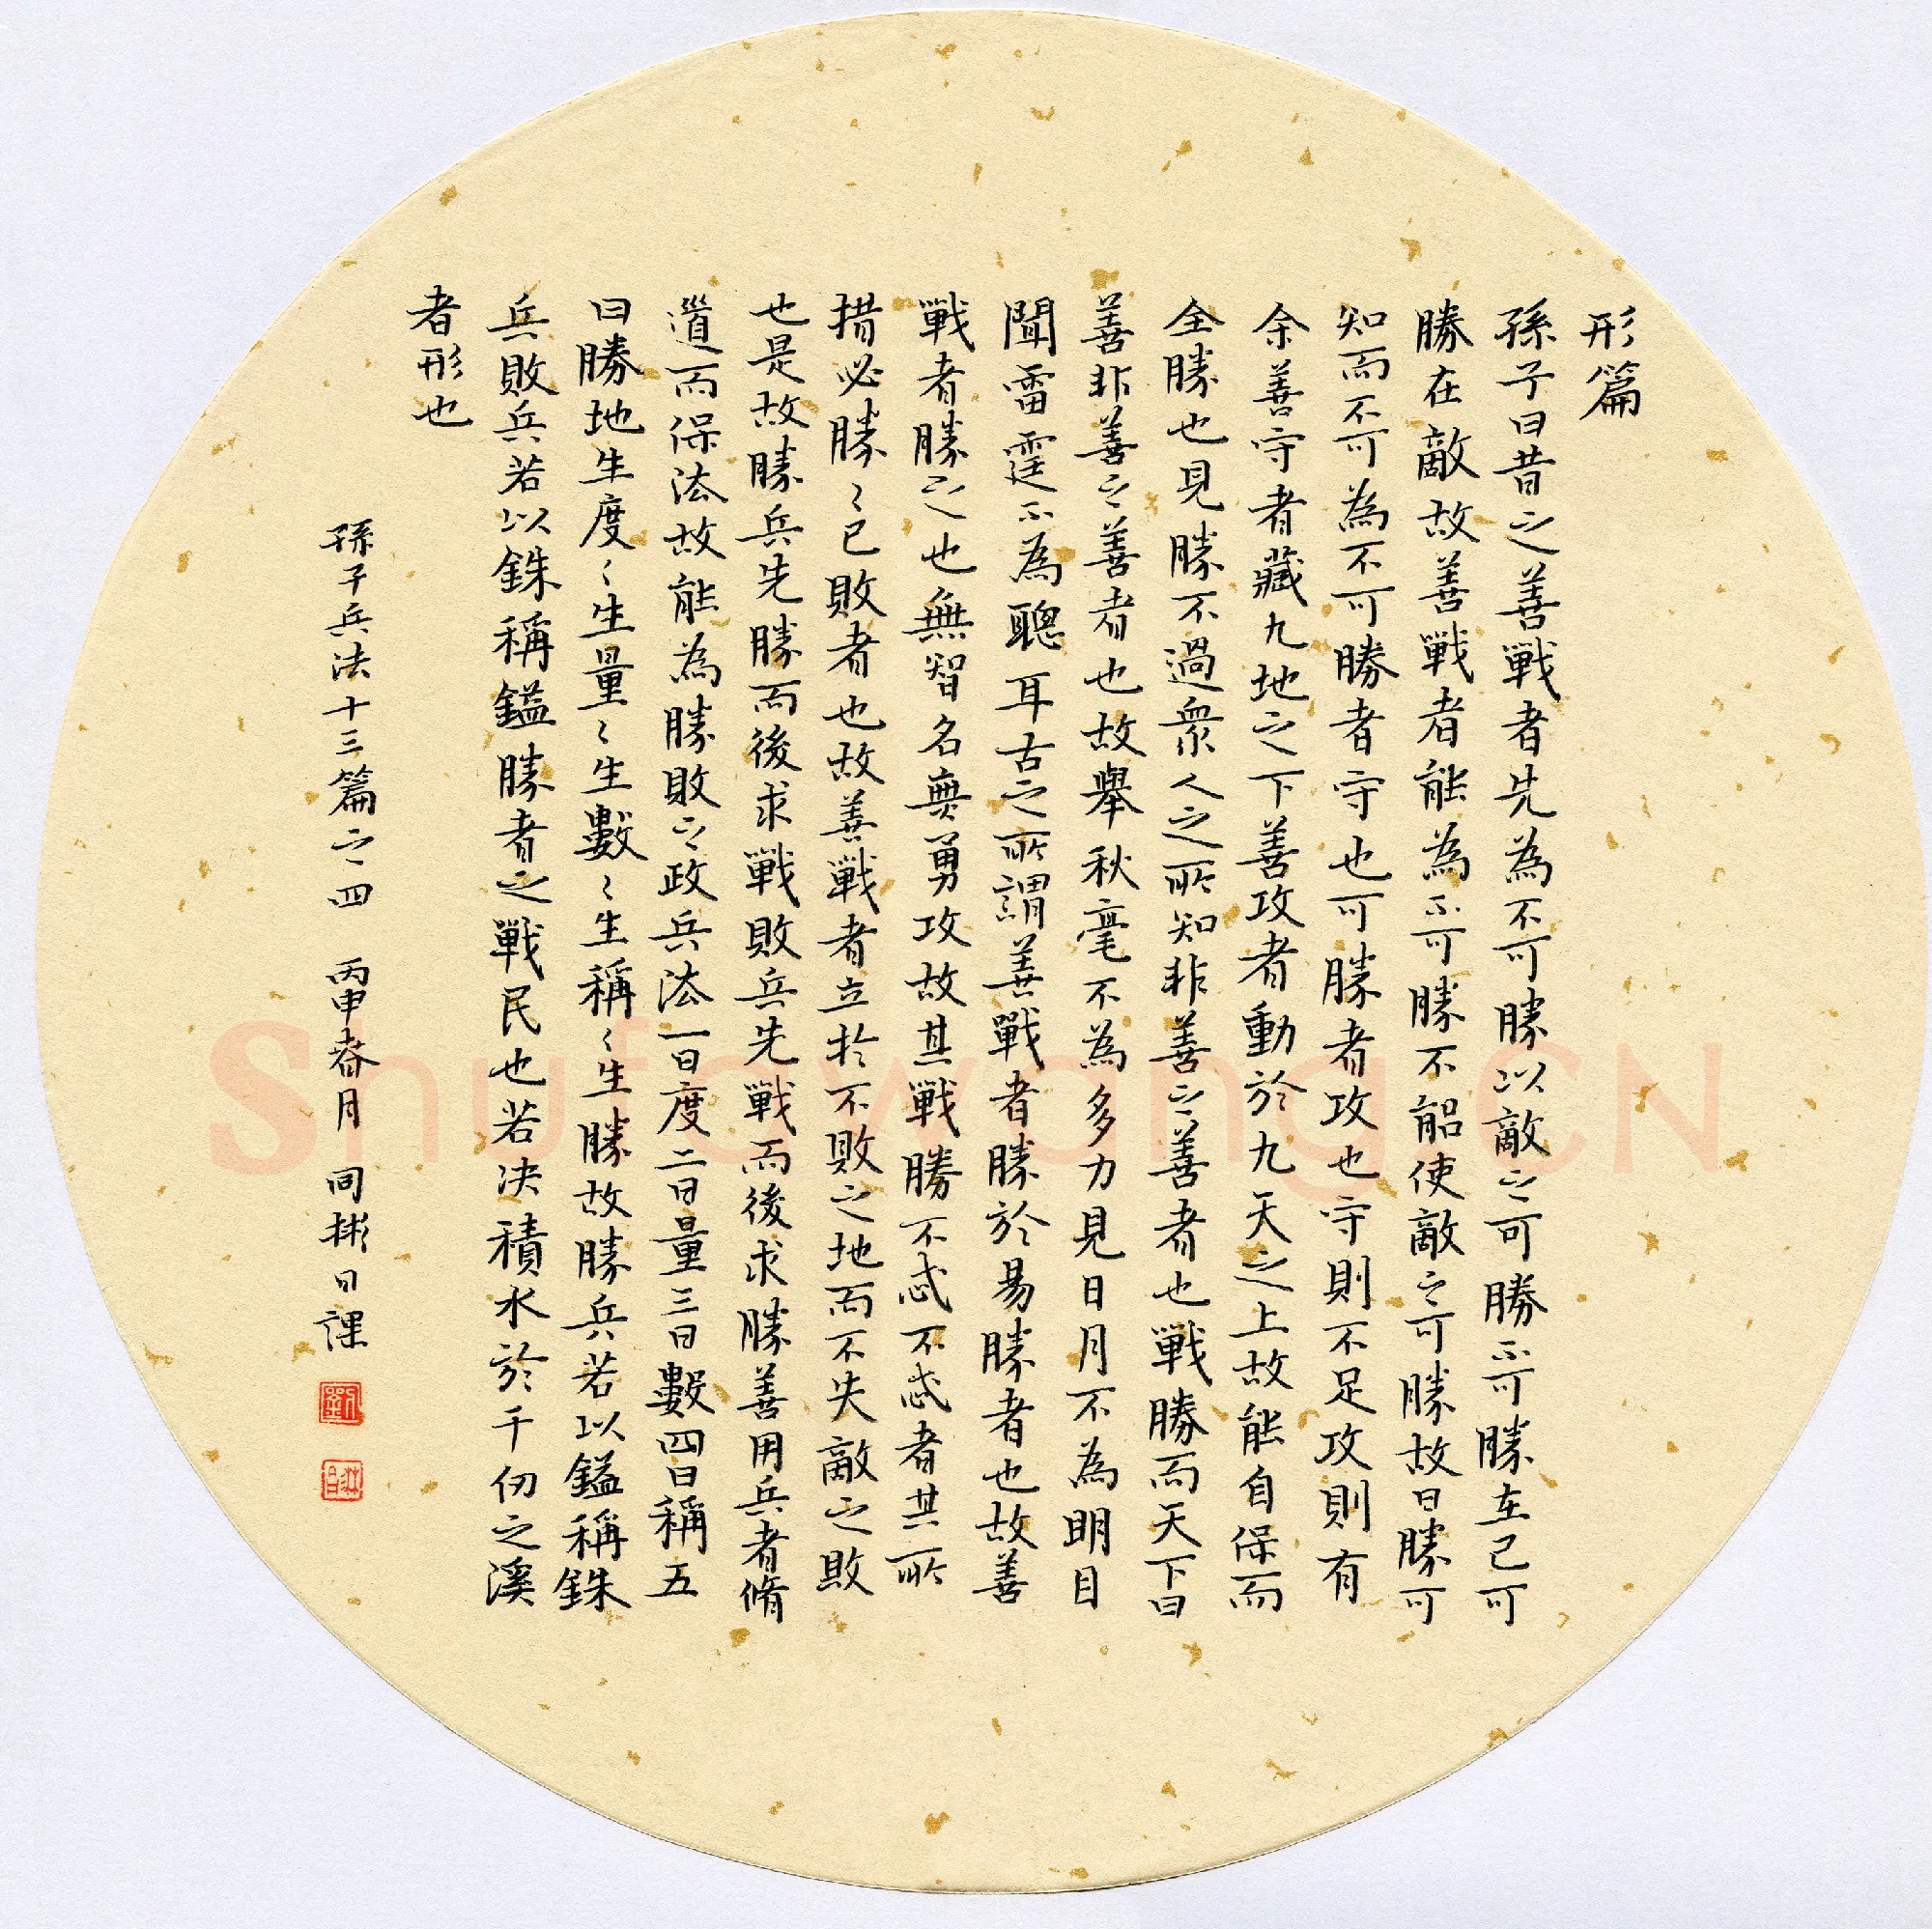 形篇
孫子曰昔之善戰者先為不可勝以敵之可勝不可勝在己可
勝在敵故善戰者能為不可勝不能使敵之可勝故曰勝可
知而不可為不可勝者守也可勝者攻也守則不足攻則有
余善守者藏九地之下善攻者動於九天之上故能自保而
全勝也見勝不過衆人之所知非善之善者也戰勝而天下曰
善非善之善者也故舉秋毫不為多力見日月不為明目
聞雷霆不為聰耳古之所謂善戰者勝於易勝者也故善
戰者勝之也無智名無勇攻故其戰勝不忒不忒者其所
措必勝〻已敗者也故善戰者立於不敗之地而不失敵之敗
也是故勝兵先勝而後求戰敗兵先戰而後求勝善用兵者脩
道而保法故能為勝敗之政兵法一曰度二曰量三曰數四曰稱五
曰勝地生度〻生量〻生數〻生稱〻生勝故勝兵若以鎰稱銖
兵敗兵若以銖稱鎰勝者之戰民也若决積水於千仞之溪
者形也
孫子兵法十三篇之四 丙申春月 同彬日課
Shufawang.CN